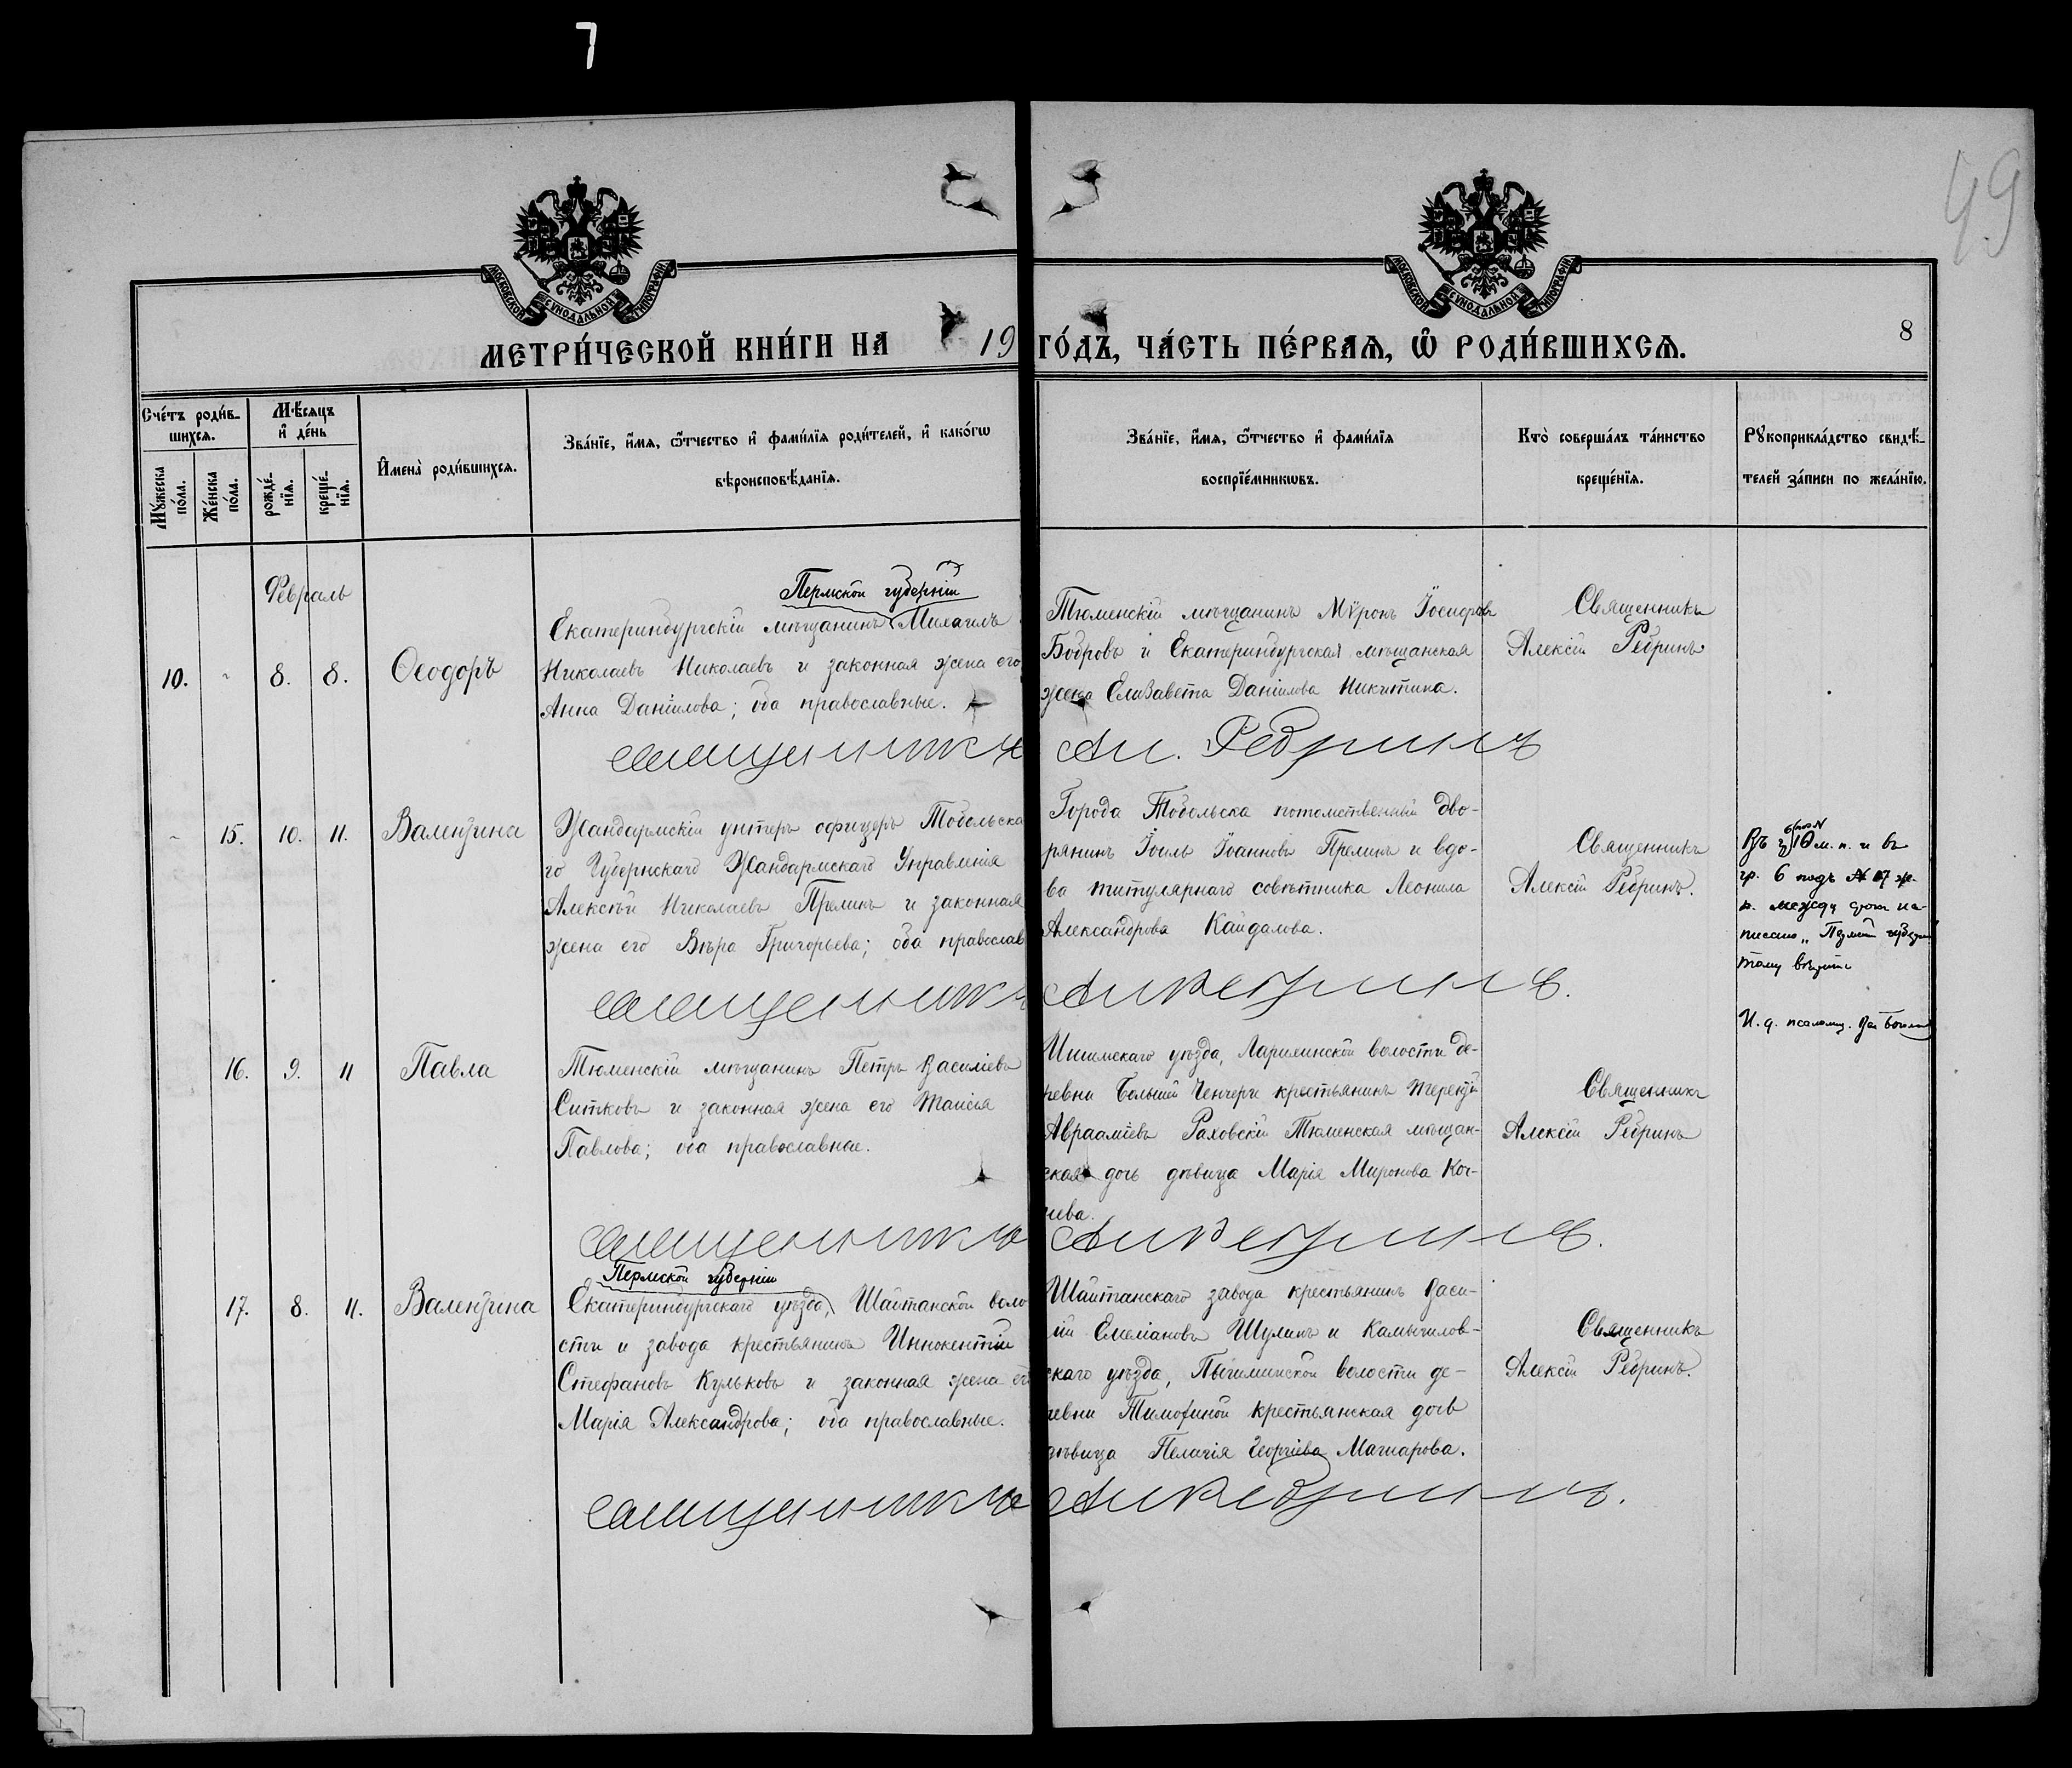 7
49
МОСКОВСКОЙ СУНОДАЛЬНОЙ ТИПОГРАФІИ
МОСКОВСКОЙ СУНОДАЛЬНОЙ ТИПОГРАФІИ
МЕТРИ́ЧЕСКОЙ КНИ́ГИ НА 19 ГО́ДЪ, ЧА́СТЬ ПЕ́РВАѦ, Ѡ҆ РОДИ́ВШИХСѦ.
8
Сче́тъ роди́в-
шихсѧ.
Мѣ́сѧцъ
и҆ де́нь
Мꙋ́жеска по́ла.
Же́нска по́ла.
рожде́-
нїѧ.
креще́-
нїѧ.
И҆мена̀ роди́вшихсѧ.
Зва́нїе, и҆́мѧ, ѻ҆́тчество и҆ фами́лїѧ роди́телей, и҆ како́гѡ
вѣроисповѣ́данїѧ.
Зва́нїе, и҆́мѧ, ѻ҆́тчество и҆ фами́лїѧ
воспрїе́мникѡвъ.
Кто̀ соверша́лъ та́инство
креще́нїѧ.
Рꙋкоприкла́дство свидѣ́-
телей за́писи по жела́нїю.
Февраль
10. 8. 8. Ѳеодоръ
Пермской губерніи
Екатеринбургскій мѣщанинъ Михаилъ
Николаевъ Николаевъ и законная жена его
Анна Даніилова; оба православные.
Тюменскій мѣщанинъ Мѵронъ Іосифовъ
Бобровъ и Екатеринбургская мѣщанская
жена Елизавета Даніилова Никитина.
Священникъ
Алексій Ребринъ
Священникъ Ал. Ребринъ
15. 10. 11. Валентина
Жандармскій унтеръ офицеръ Тобольска
го Губернскаго Жандармскаго Управленія
Алексѣй Николаевъ Прелинъ и законная
жена его Вѣра Григорьева; оба православ
Города Тобольска потомственный дво-
рянинъ Іоиль Іоанновъ Прелинъ и вдо-
ва титулярнаго совѣтника Леонила
Александрова Кайдалова.
Священникъ
Алексій Ребринъ.
Священникъ Ал Ребринъ.
10 м. п. и въ
гр. 6 подъ № 17 ж.
п. между строк на-
писано „Пермской губерніи
тому вѣрить
И. д. псаломщ.
16. 9. 11 Павла
Тюменскій мѣщанинъ Петръ Василіевъ
Ситковъ и законная жена его Таисія
Павлова; оба православные.
Ишимскаго уѣзда, Ларихинской волости де-
ревни Большой Ченчерь крестьянинъ Терентій
Авраамievъ Раховскій Тюменская мѣщан-
ская дочь дѣвица Марія Миронова Коч-
нева.
Священникъ
Алексій Ребринъ
Священникъ Ал Ребринъ.
17. 8. 11. Валентина
Пермской губерніи
Екатеринбургскаго уѣзда, Шайтанской воло
сти и завода крестьянинъ Иннокентій
Стефановъ Кульковъ и законная жена его
Марія Александрова; оба православные.
Шайтанскаго завода крестьянинъ Васи-
лій Емеліановъ Шулинъ и Камышлов-
скаго уѣзда, Пышминской волости де-
ревни Тимохиной крестьянская дочь
дѣвица Пелагія Георгіева Машарова.
Священникъ
Алексій Ребринъ.
Священникъ Ал Ребринъ.